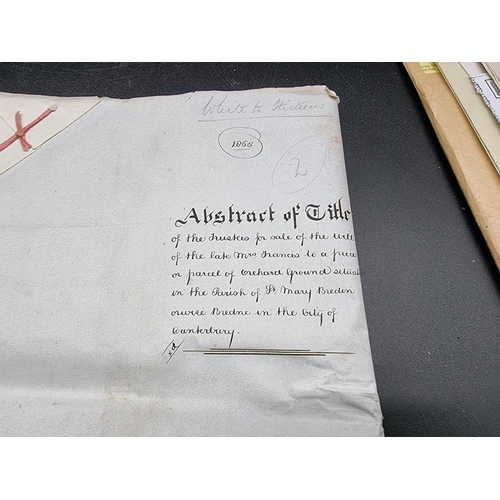 White to Stickens
1865
2
Abstract of Title
of the Trustees for sale of the Will
of the late Mrs Francis to a piece
or parcel of Orchard Ground situate
in the Parish of St Mary Bredin
orwise Bredne in the City of
Canterbury.